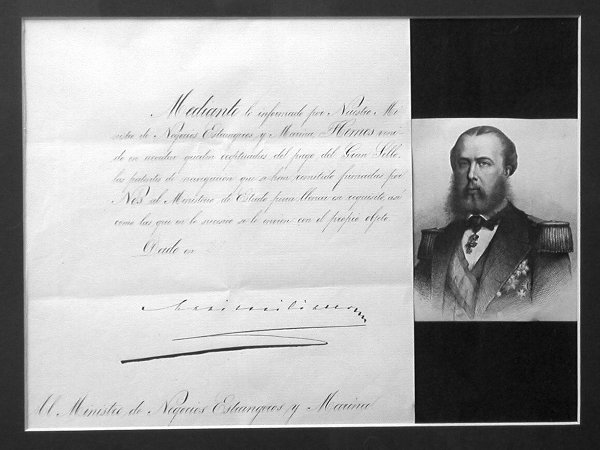 Mediante lo informado por Nuestro Mi-
nistro de Negocios Estrangeros y Marina, Hemos veni-
do en acordar queden esceptuadas del pago del Gran Sello
las patentes de navegacion que se han remitido firmadas por
Nos al Ministerio de Estado para llenar ese requisito, asi
como las que en lo sucesivo se le envien con el propio objeto.
Dado en
Maximiliano
Al Ministro de Negocios Estrangeros y Marina